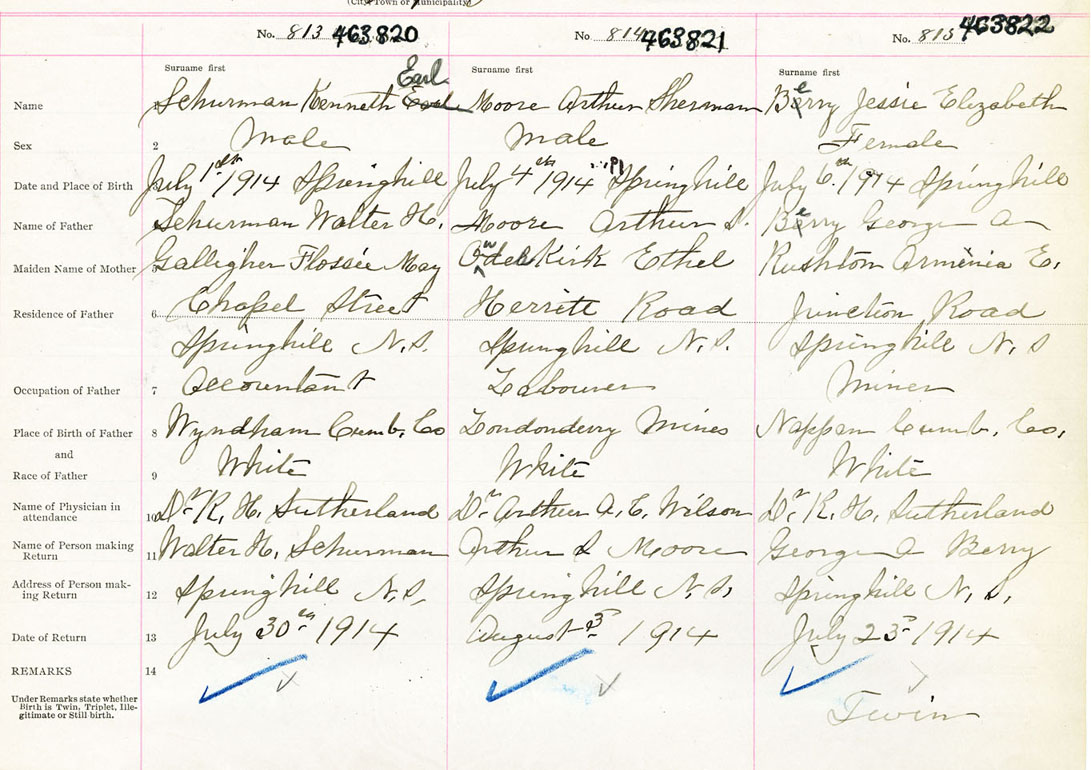 (City, Town or Municipality)
No. 813 463820 No. 814 463821 No. 815 463822
Surname first Surname first Surname first
Earl
Name 1 Schurman Kenneth Earl Moore Arthur Sherman Berry Jessie Elizabeth
Sex 2 Male Male Female
Date and Place of Birth July 1st 1914 Springhill July 4th 1914 Springhill July 6th 1914 Springhill
Name of Father Schurman Walter H. Moore Arthur S. Berry George A
Maiden Name of Mother Galligher Flossie May Odelkirk Ethel Rushton Armenia E.
Residence of Father 6 Chapel Street Herritt Road Junction Road
Springhill N.S. Springhill N.S. Springhill N.S
Occupation of Father 7 Accountant Labourer Miner
Place of Birth of Father 8 Wyndham Cumb. Co Londonderry Mines Nappan Cumb. Co.
and
Race of Father 9 White White White
Name of Physician in
attendance 10 Dr R. H. Sutherland Dr Arthur A. E. Wilson Dr. R. H. Sutherland
Name of Person making
Return 11 Walter H. Schurman Arthur S Moore George A Berry
Address of Person mak-
ing Return 12 Springhill N.S. Springhill N.S. Springhill N.S.
Date of Return 13 July 30th 1914 August 3rd 1914 July 23rd 1914
REMARKS 14
Under Remarks state whether
Birth is Twin, Triplet, Ille-
gitimate or Still birth.
Twin